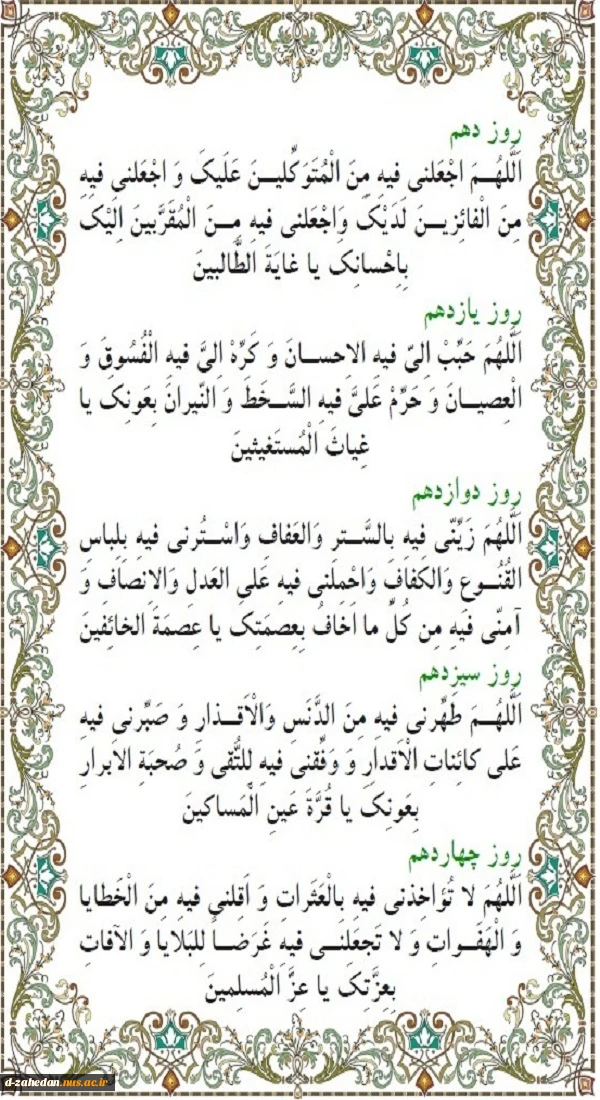 روز دهم
اَللهُـمَ اجْعَلنی فیهِ مِنَ الْمُتَوَکِّلیـنَ عَلَیکَ وَ اجْعَلنی فیهِ
مِنَ الْفائِزیـنَ لَدَیْکَ وَاجْعَلنی فیهِ مِـنَ الْمُقَرَّبینَ اِلَیْکَ
بِاِحْسانِکَ یا غایَةَ الطّالبینَ
روز یازدهم
اَللّهُمَ حَبِّبْ اِلیّ فیهِ الاحسـانَ وَ کَرِّهْ الیَّ فیهِ الْفُسُوقَ وَ
الْعِصیـانَ وَ حَرِّمْ عَلیَّ فیهِ السَّـخَطَ وَ النّیرانَ بِعَونِکَ یا
غِیاثَ الْمُستَغیثینَ
روز دوازدهم
اَللّهُمَ زَیِّنّی فیهِ بِالسَّـترِ وَالعَفافِ وَاسْـتُرنی فیهِ بِلِباسِ
القُنُـوعِ وَالکِفافِ وَاحْمِلنی فیهِ عَلیِ العَدلِ وَالانِصافِ وَ
آمِنّی فیهِ مِن کُلِّ ما اَخافُ بِعِصمَتِکَ یا عِصمَةَ الخائِفینَ
روز سیزدهم
اَللّهُـمَ طَهِّرنی فیهِ مِنَ الدَّنَسِ وَالْاَقـذارِ وَ صَبِّرنی فیهِ
عَلی کائِناتِ الْاَقدارِ وَ وَفِّقنی فیهِ لِلتُّقی وَ صُحبَةِ الاَبرارِ
بِعَونِکَ یا قُرَّةَ عَینِ الْمَساکینَ
روز چهاردهم
اَللّهُمَ لا تُؤاخِذنی فیهِ بِالْعَثَراتِ وَ اَقِلنی فیهِ مِنَ الْخَطایا
وَ الْهَفـواتِ وَ لا تَجعَلنَـی فیهِ غَرَضـاً لِلبَلایا وَ الآفاتِ
بِعِزَّتِکَ یا عِزَّ الْمُسلِمینَ
d-zahedan.nus.ac.ir